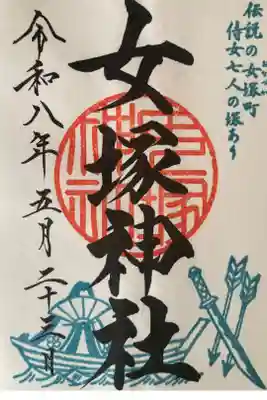 伝説の女塚町
侍女七人の塚あり
女塚神社
令和八年五月二十三日